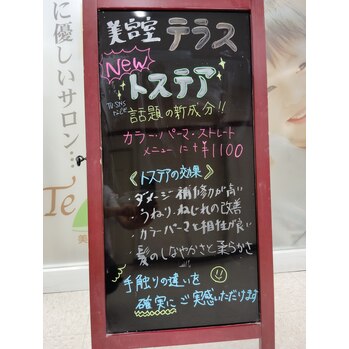 美容室 テラス
New
トステア
話題の新成分!!
カラー・パーマ・ストレート
メニューに+¥1100
《トステアの効果》
・ダメージ補修力が高い
・うねり、ねじれの改善
・カラーパーマと相性が良い
・髪のしなやかさと柔らかさ
手触りの違いを
確実にご実感いただけます
に優しいサロン…
Te
美